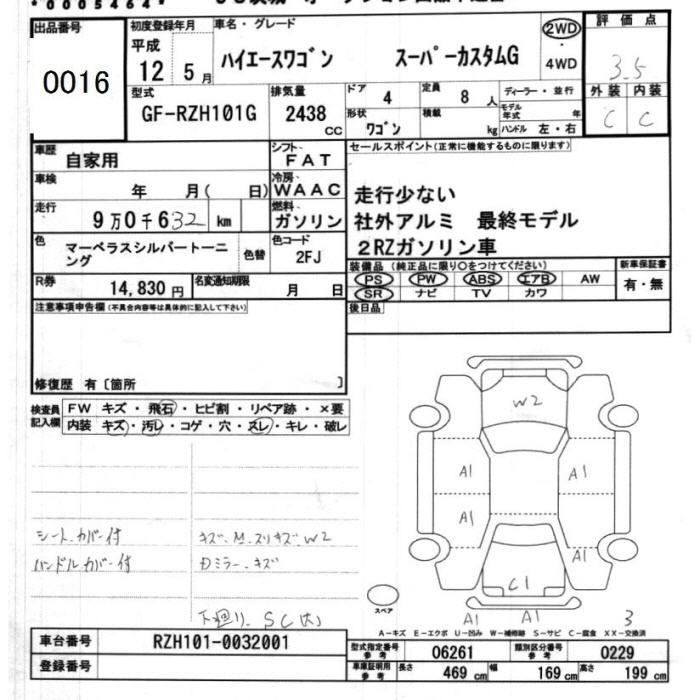 *0005464*
出品番号
0016
初度登録年月
平成
12年5月
車名・グレード
ハイエースワゴン スーパーカスタムG
2WD
・
4WD
評価点
3.5
外装 内装
C C
型式
GF-RZH101G
排気量
2438
cc
ドア
4
定員
8人
形状
ワゴン
積載
kg
ディーラー・並行
モデル年式 年
ハンドル 左・右
車歴
自家用
シフト
FAT
車検
年 月( 日)
冷房
WAAC
走行
9万0千632 km
燃料
ガソリン
色
マーベラスシルバートーニング
色替
色コード
2FJ
R券
14,830円
名変通知期限
月 日
セールスポイント(正常に機能するものに限ります)
走行少ない
社外アルミ 最終モデル
2RZガソリン車
装備品 (純正品に限り○をつけてください)
PS PW ABS エアB AW
SR ナビ TV カワ
新車保証書
有・無
後日品
注意事項申告欄(不具合内容等は具体的に記入して下さい)
修復歴 有〔箇所 〕
検査員記入欄
FW キズ・飛石・ヒビ割・リペア跡・×要
内装 キズ・汚レ・コゲ・穴・スレ・キレ・破レ
シートカバー付
ハンドルカバー付
キズ.M.スリキズ.W2
Dミラー.キズ
下廻り.SC(大)
W2
A1
A1
A1
A1
C1
A1
A1
3
スペア
A-キズ E-エクボ U-凹み W-補修跡 S-サビ C-腐食 XX-交換済
車台番号
RZH101-0032001
登録番号
型式指定番号
参考
06261
類別区分番号
参考
0229
車庫証明用
参考
長さ 469cm
幅 169cm
高さ 199cm